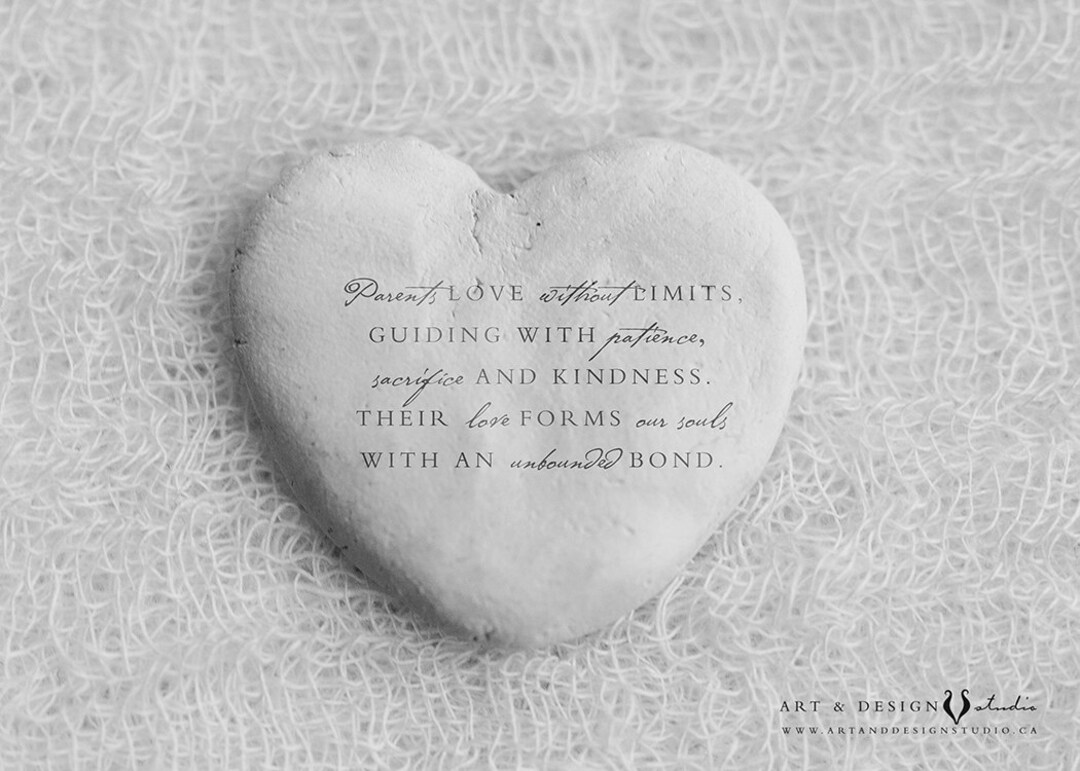 Parents LOVE without LIMITS,
GUIDING WITH patience,
sacrifice AND KINDNESS.
THEIR love FORMS our souls
WITH AN unbounded BOND.
ART & DESIGN studio
WWW.ARTANDDESIGNSTUDIO.CA